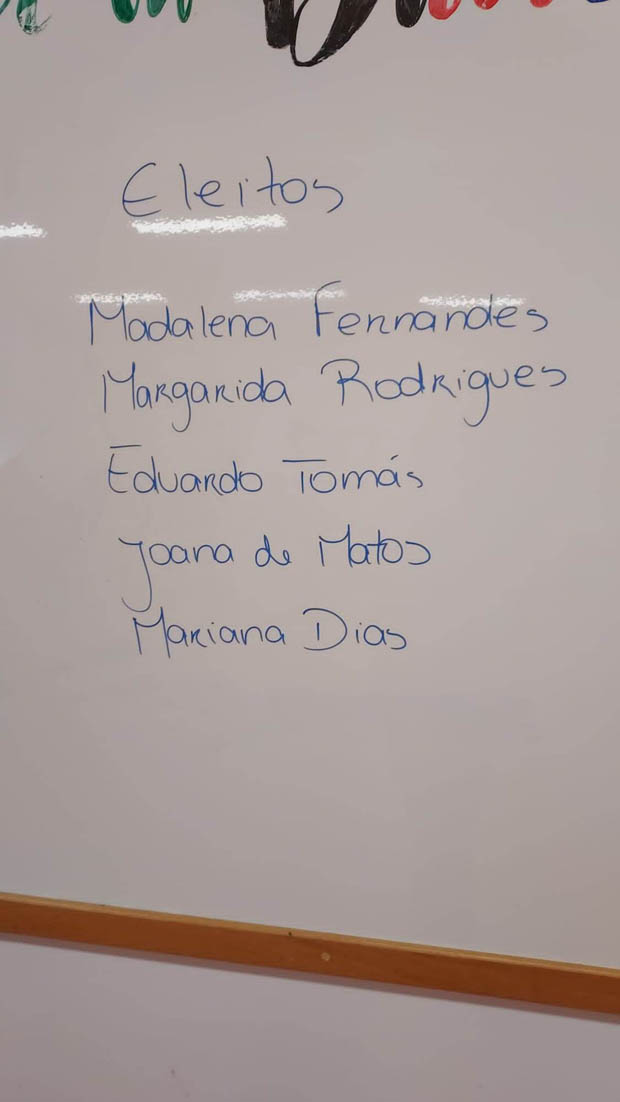 Eleitos
Madalena Fernandes
Margarida Rodrigues
Eduardo Tomás
Joana de Matos
Mariana Dias